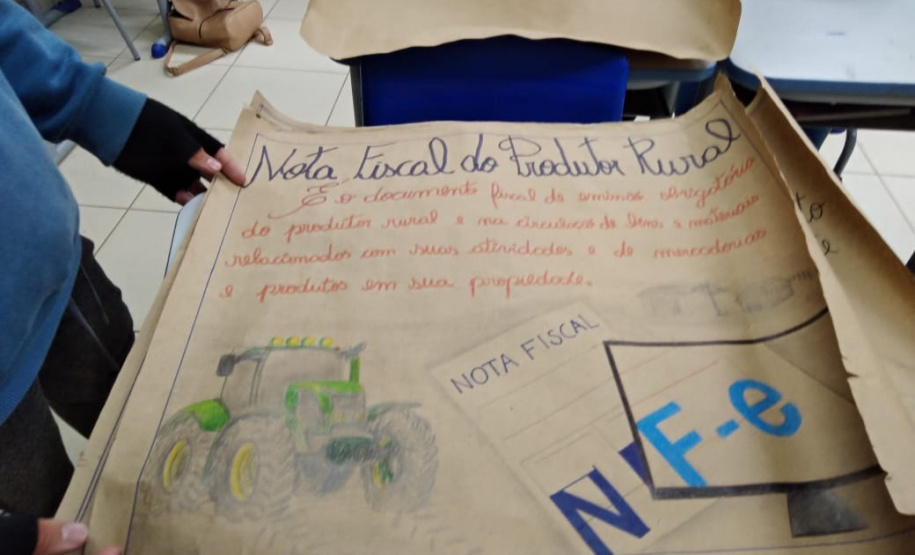 Nota Fiscal do Produtor Rural
É o documento fiscal de emissão obrigatória
do produtor rural e na circulação de bens e materiais
relacionados com suas atividades e de mercadorias
e produtos em sua propiedade.
NOTA FISCAL
NF-e
to
e